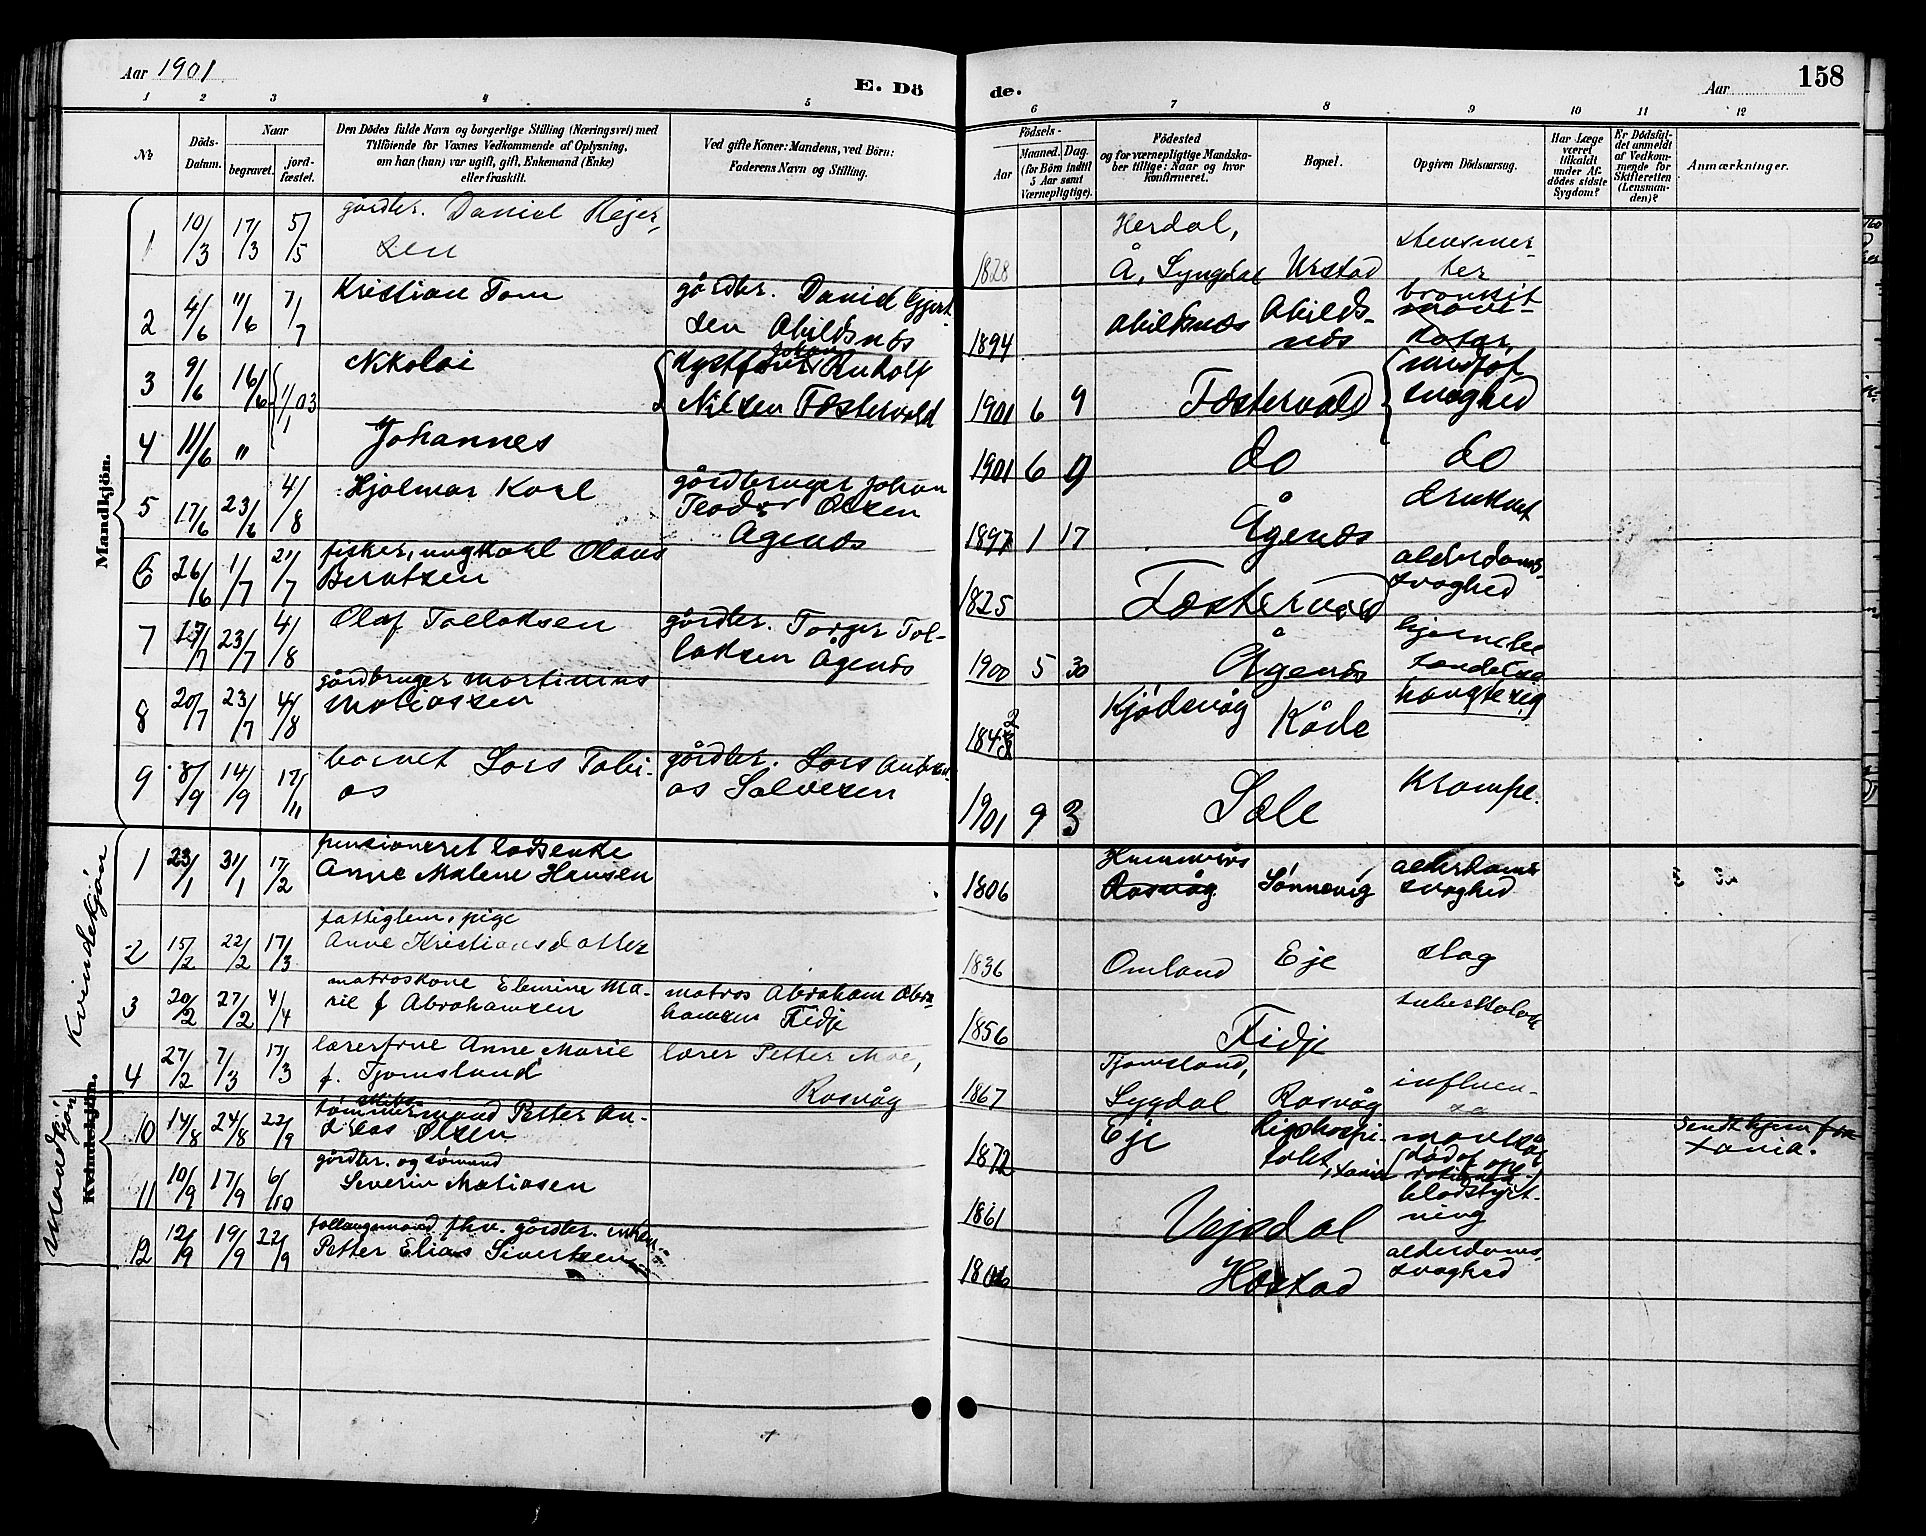 Aar 1901
E. Dö
de.
Aar
158
1 2 3 4 5 6 7 8 9 10 11 12
№
Döds-
Datum.
Naar
begravet.
jord-
fæstet.
Den Dödes fulde Navn og borgerlige Stilling (Næringsvei) med
Tilföiende for Voxnes Vedkommende af Oplysning,
om han (hun) var ugift, gift, Enkemand (Enke)
eller fraskilt.
Ved gifte Koner: Mandens, ved Börn:
Faderens Navn og Stilling.
Födsels-
Aar
Maaned. Dag.
(for Börn indtil
5 Aar samt
Værnepligtige).
Födested
og for værnepligtige Mandska-
ber tillige: Naar og hvor
konfirmeret.
Bopæl.
Opgiven Dödsaarsag.
Har Læge
været
tilkaldt
under Af-
dödes sidste
Sygdom?
Er Dödsfal-
det anmeldt
af Vedkom-
mende for
Skifteretten
(Lensman-
den)?
Anmærkninger.
Mandkjön.
1 10/3 17/3 5/5 gårdbr. Daniel Rejer-
sen
1828 Herdal,
Å, Lyngdal Urstad
2 4/6 11/6 7/7 Kristian Tom
gårdbr. Daniel Gjert-
sen Abildsnös
1894 Abildsnæs Abilds-
nös
bronkit
3 9/6 16/6 1/1 03 Nikolai
Johan Rudolf
Nilsen Fostervold
1901 6 9 Fostervold
svaghed
4 11/6 " Johannes
1901 6 9 do do
5 17/6 23/6 4/8 Hjalmar Karl
gårdbruger Johan
Teodor Olsen
Agenæs
1897 1 17 Ågenæs druknet
6 26/6 1/7 21/7 fisker, ungkarl Olaus
Berntsen
1825 Fostervold
alderdoms-
svaghed
7 17/7 23/7 4/8 Olaf Tollaksen
gårdbr. Torger Tol-
laksen Ågenæs
1900 5 30 Ågenæs
8 20/7 23/7 4/8 gårdbruger Martinius
Matiassen
1843 2 Kjødevåg Kåde
hængte sig
9 8/9 14/9 17/11 barnet Lars Tobi-
as
gårdbr. Lars
as Salvesen
1901 9 3 Sæle Krampe.
Kvindekjön
1 23/1 31/1 17/2 pensioneret lodsenke
Anne Malene Hansen
1806
Rasvåg Sønnevig
alderdoms
svaghed
2 15/2 22/2 17/3 fattiglem, pige
Anne Kristiansdatter
1836 Omland Eje slag
3 20/2 27/2 4/4 matroskone Elemine Ma-
rie f Abrahamsen
matros Abraham Abra-
hamsen Fidje
1856 Fidje tuberkulose
4 27/2 7/3 17/3 lærerfrue Anne Marie
f. Tjomsland
lærer Petter Moe,
Rasvåg
1867 Tjomsland,
Lygdal Rasvåg influen-
za
Mandkjön
Kvindekjön.
10 14/8 24/8 22/9 tømmermand Petter An-
dreas Olsen
1872 Eje Rigshospi-
talet,
død af ope-
Sendt hjem fra
xania.
11 10/9 17/9 6/10 gårdbr. og sømand
Severin Matiasen
1861 Vejsdal
blodstyrt-
ning
12 12/9 19/9 22/9 follaugsmand fhv. gårdbr. enkem.
Petter Elias Sivertsen
Hæstad
alderdoms-
svaghed